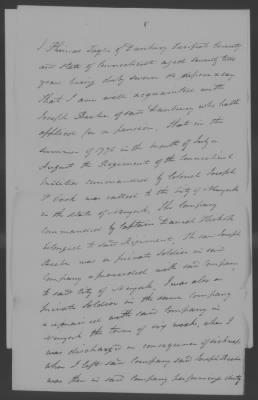 I Thomas Taylor of Danbury Fairfield County
and State of Connecticut aged seventy two
years being duly sworn do depose & say
That I am well acquainted with
Joseph of said Danbury who hath
applied for a pension. That in the
summer of 1776 in the month of July or
August the Regiment of the Connecticut
militia commanded by Colonel Joseph
P Cook was called to the City of Newyork
in the state of Newyork, The Company
commanded by Captain Daniel Hickok
belonged to said Regiment, The said Joseph
was a private soldier in said
Company & proceeded with said Company
to said City of Newyork, I was also a
private soldier in the same Company
& remained with said Company in
Newyork the term of six weeks, when I
was discharged in consequence of sickness
when I left said Company said Joseph
was then in said Company performing duty